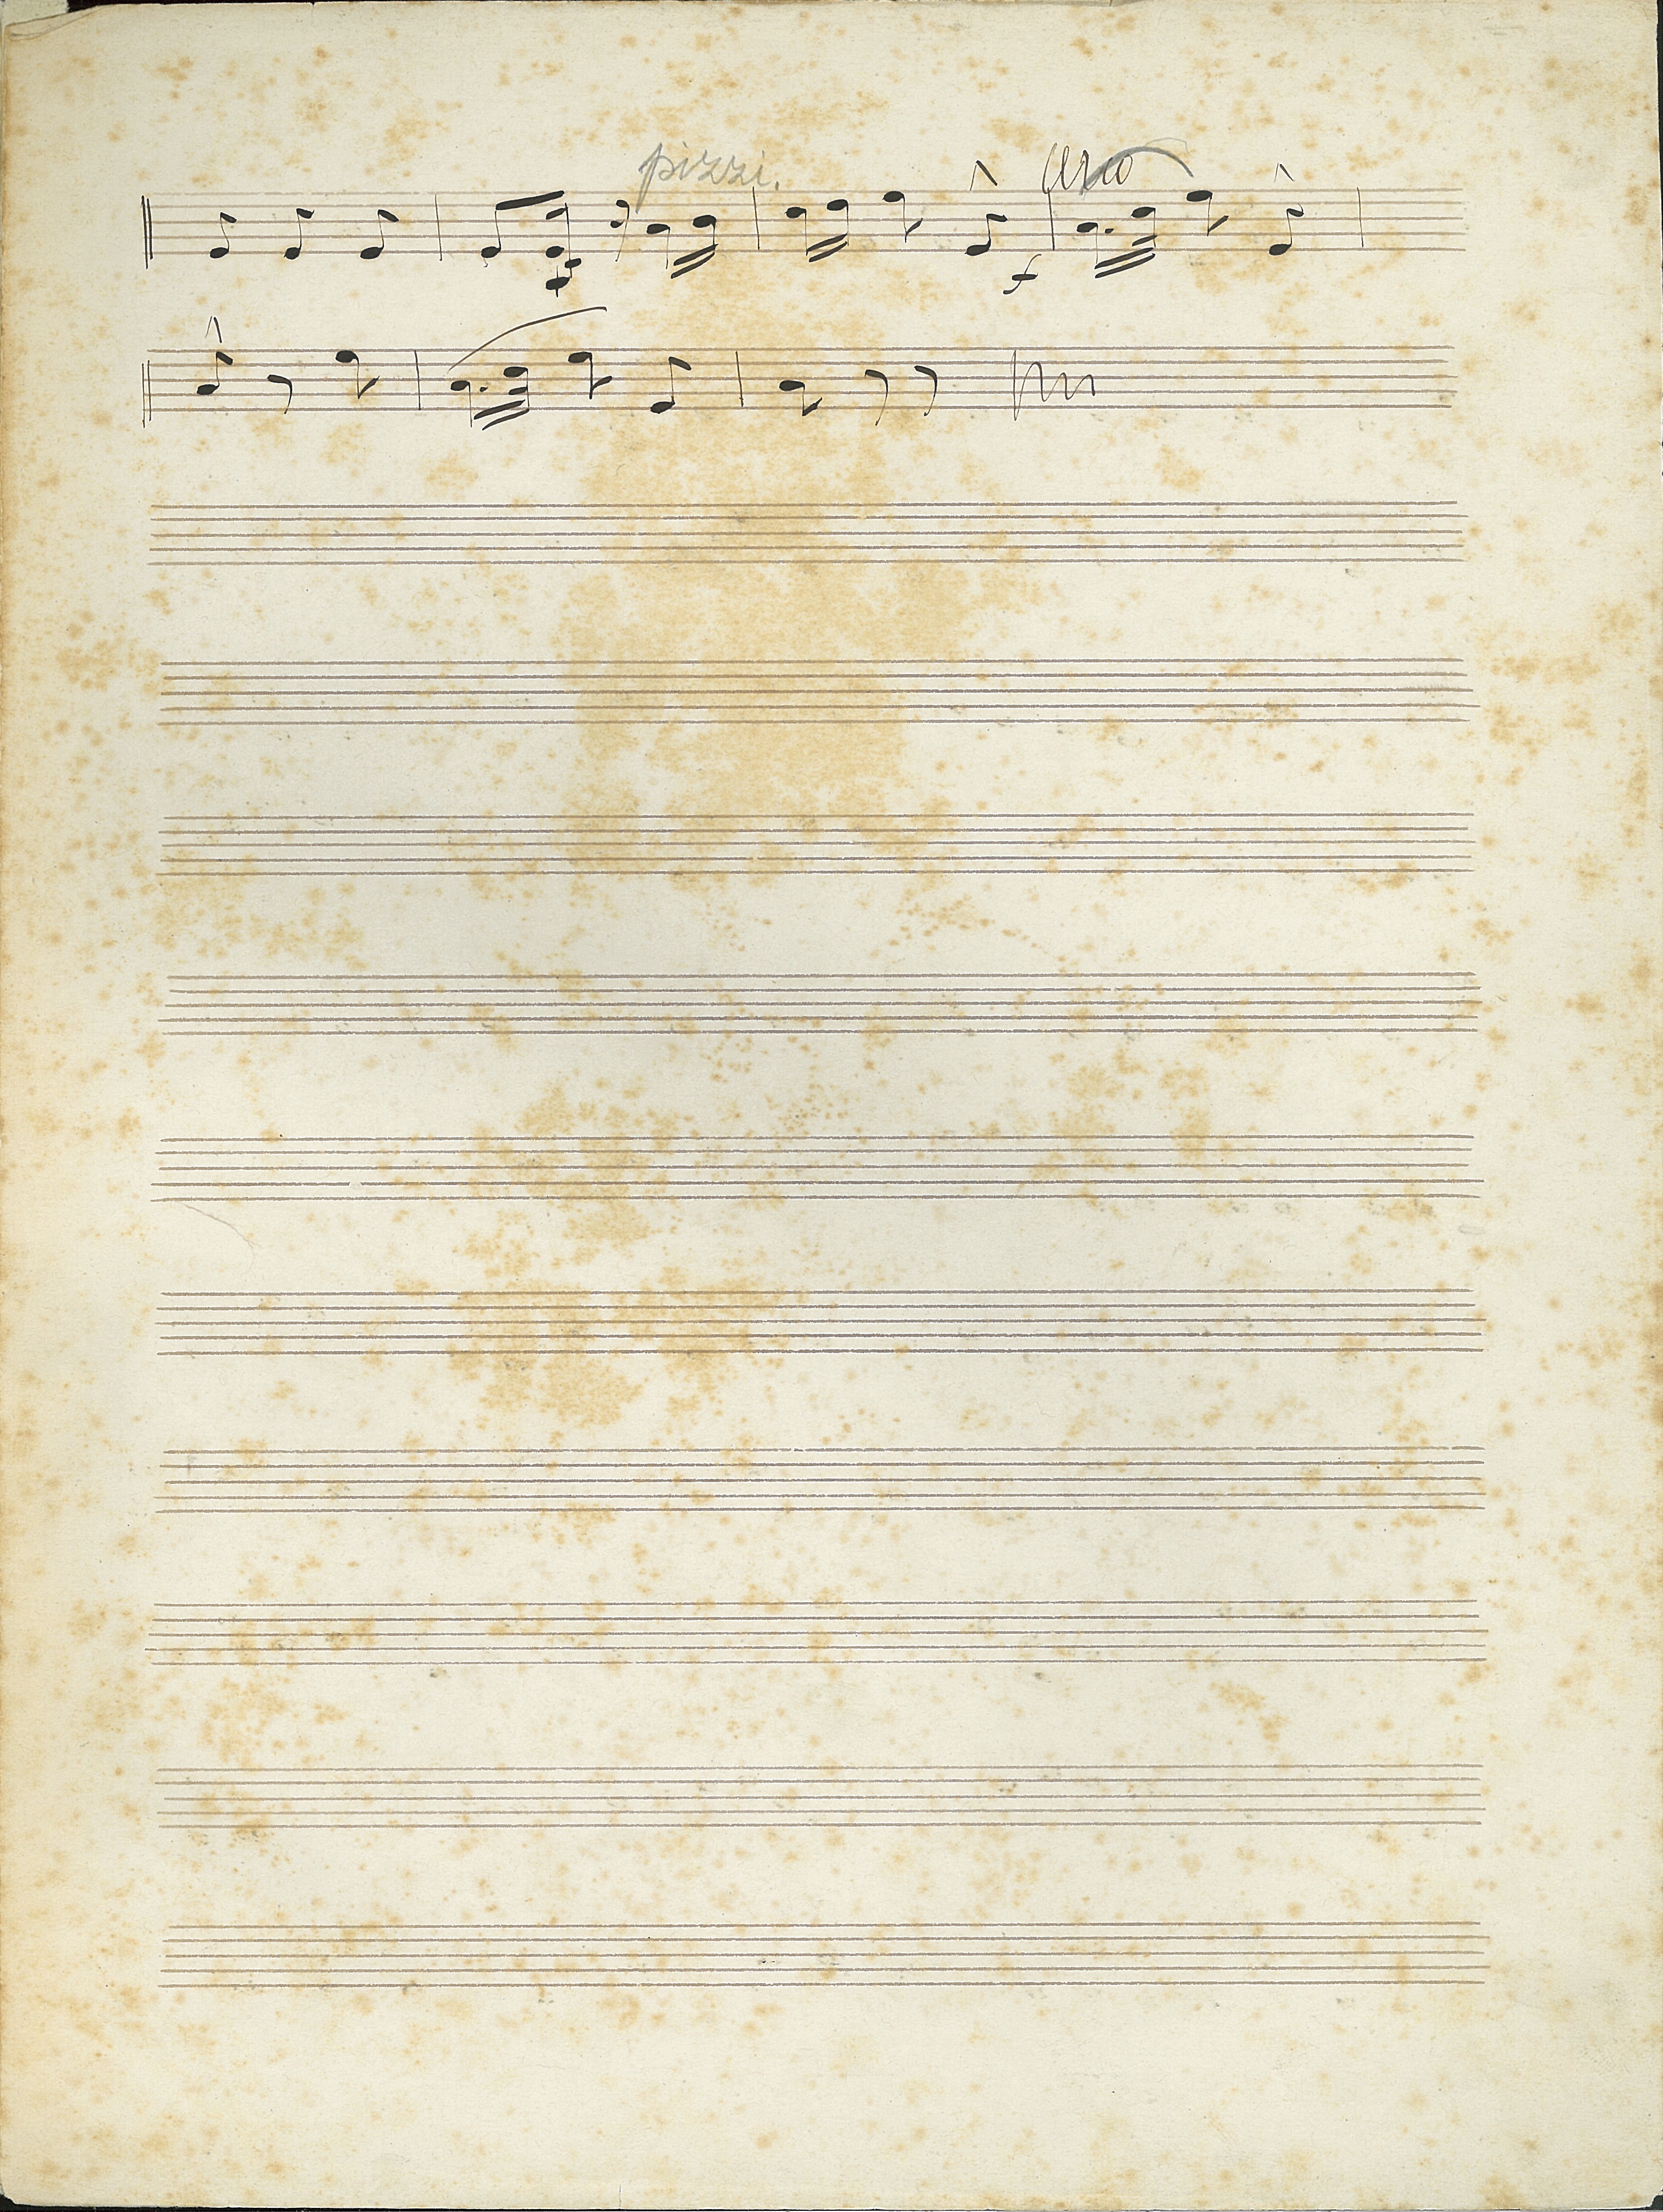 pizzi. arco
f